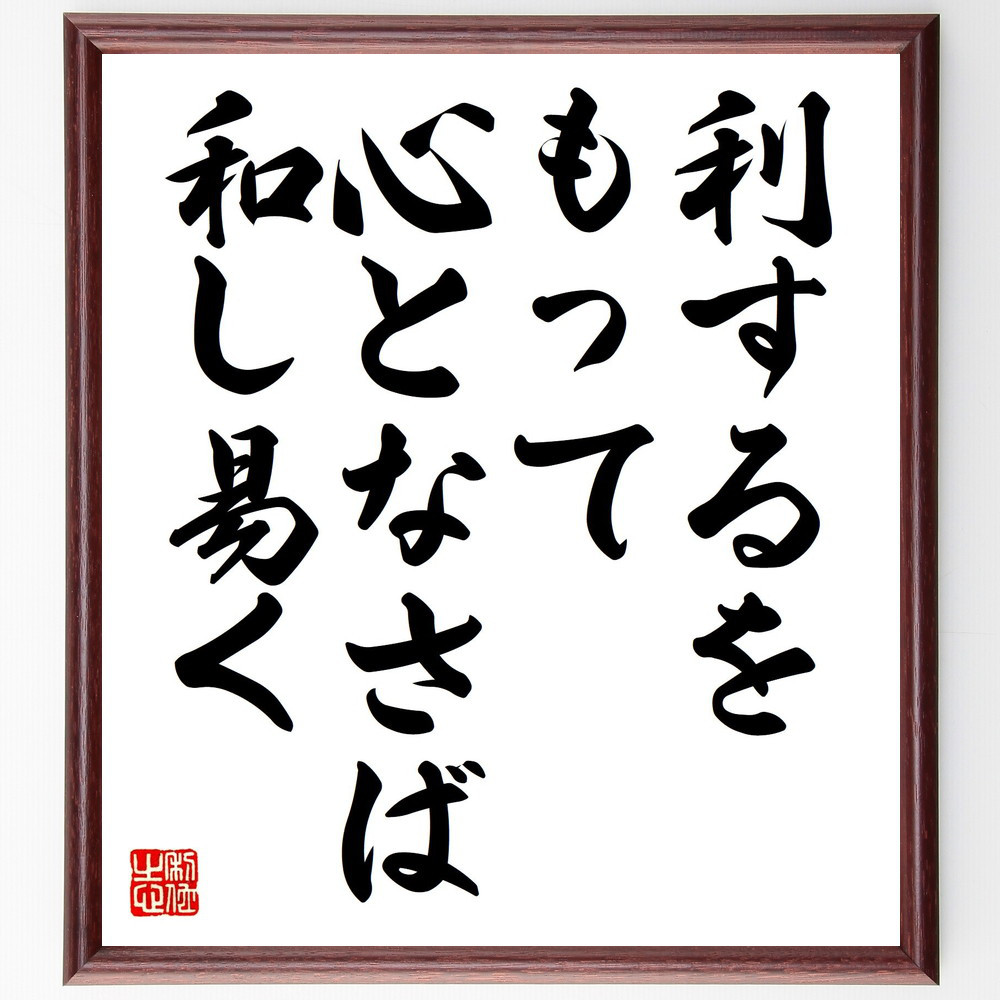 利するを
もって
心となさば
和し易く